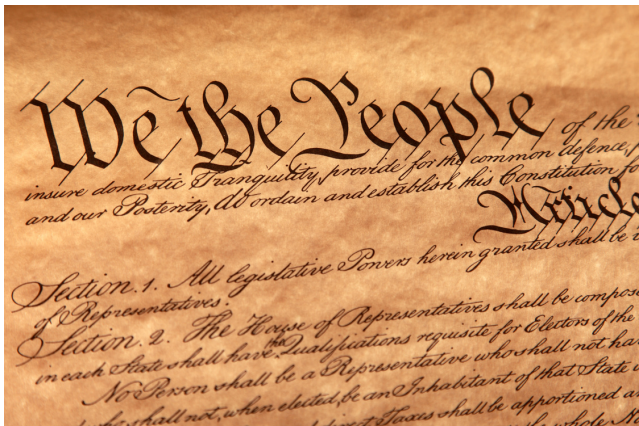 We the People of the
insure domestic Tranquility, provide for the common defence,
and our Posterity, do ordain and establish this Constitution fo
Article
Section. 1. All legislative Powers herein granted shall be
of Representatives.
Section. 2. The House of Representatives shall be compos
in each State shall have the Qualifications requisite for Electors of the
No Person shall be a Representative who shall not ha
who shall not, when elected, be an Inhabitant of that State
Taxes shall be apportioned
whole